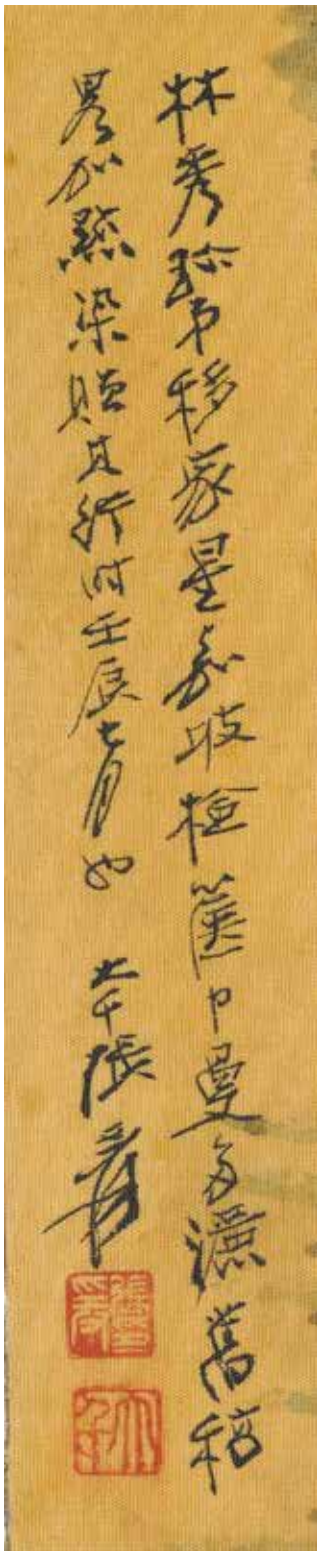 林秀珍弟移家星嘉坡檢篋中曼多灕舊稿
畧加點染贈其行時壬辰七月也　大千張爰
張爰
大千